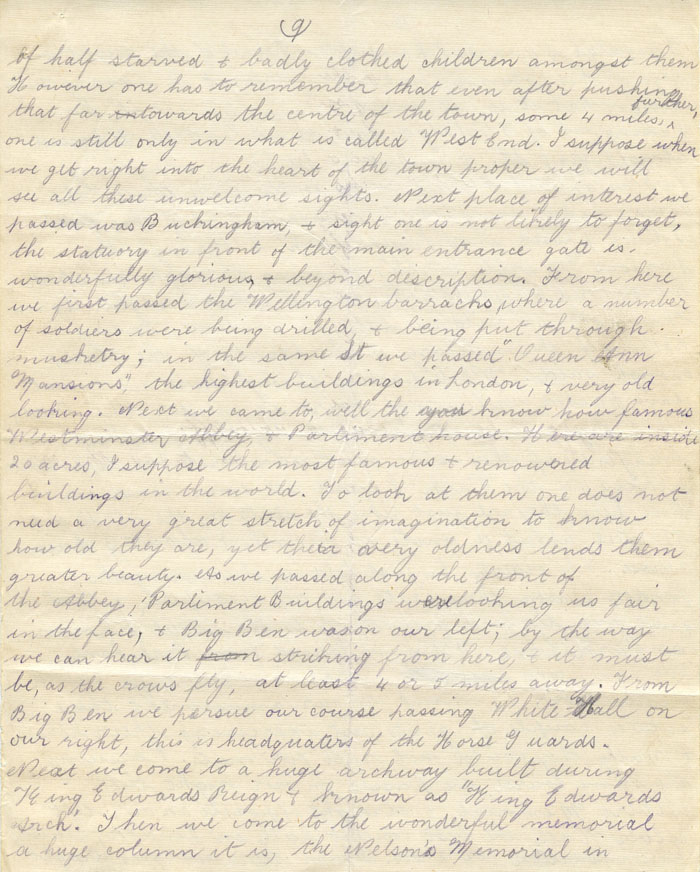 9
of half starved & badly clothed children amongst them
However one has to remember that even after pushing
that far towards the centre of the town, some 4 miles, further,
one is still only in what is called West End. I suppose when
we get right into the heart of the town proper we will
see all these unwelcome sights. Next place of interest we
passed was Buckingham, & sight one is not likely to forget,
the statuary in front of the main entrance gate is.
wonderfully glorious, & beyond description. From here
we first passed the Wellington barracks, where a number
of soldiers were being drilled, & being put through.
musketry; in the same St we passed "Queen Ann
Mansions", the highest buildings in London, & very old
looking. Next we came to, well the you know how famous
Westminster Abbey, & Parliment house. Here are inside
20 acres, I suppose the most famous & renowered
buildings in the world. To look at them one does not
need a very great stretch of imagination to know
how old they are, yet their very oldness lends them
greater beauty. As we passed along the front of
the Abbey, Parliment Buildings were looking us fair
in the face, & Big Ben was on our left; by the way
we can hear it from striking from here, & it must
be, as the crows fly, at least 4 or 5 miles away. From
Big Ben we persue our course passing White Hall on
our right, this is headquaters of the Horse Guards.
Next we come to a huge archway built during
King Edwards Reign & known as "King Edwards
Arch". Then we come to the wonderful memorial
a huge column it is, the Nelson's Memorial in